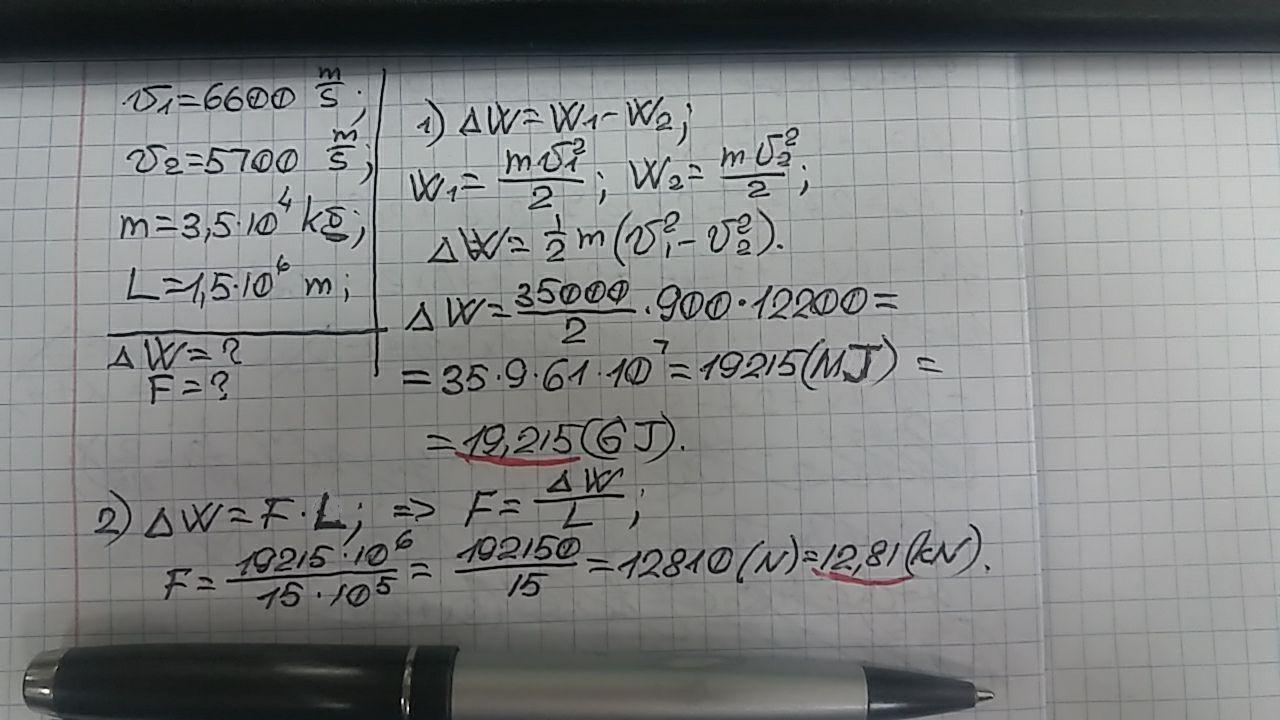 v₁=6600 m/s;
v₂=5700 m/s;
m=3,5·10⁴ kg;
L=1,5·10⁶ m;
ΔW=?
F=?
1) ΔW=W₁-W₂;
W₁= mv₁²/2; W₂= mv₂²/2;
ΔW= 1/2 m(v₁²-v₂²).
ΔW= 35000/2 ·900·12300=
=35·9·61·10⁷=19215(MJ)=
=19,215(GJ).
2) ΔW=F·L; => F= ΔW/L;
F= 19215·10⁶/15·10⁵ = 192150/15 =12810(N)=12,81(kN).